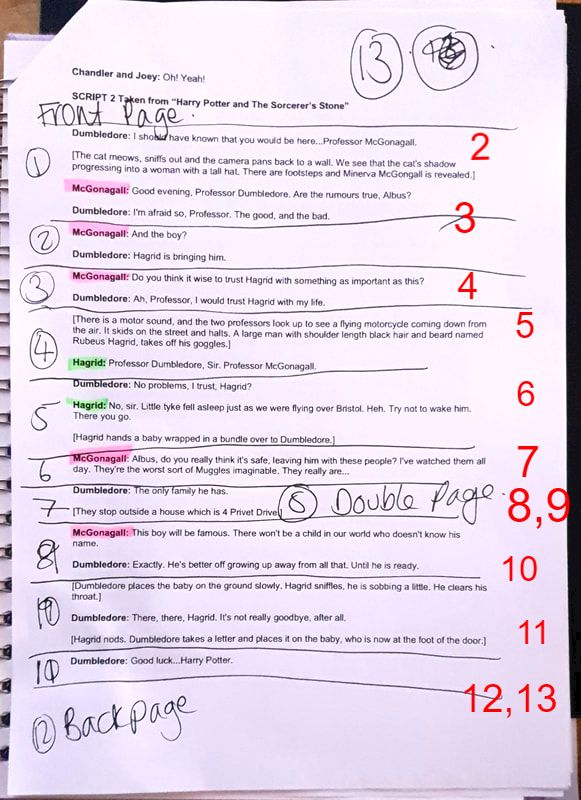 13
Chandler and Joey: Oh! Yeah!
SCRIPT 2 Taken from "Harry Potter and The Sorcerer's Stone"
Front Page.
Dumbledore: I should have known that you would be here...Professor McGonagall.
2
1
[The cat meows, sniffs out and the camera pans back to a wall. We see that the cat's shadow
progressing into a woman with a tall hat. There are footsteps and Minerva McGongall is revealed.]
McGonagall: Good evening, Professor Dumbledore. Are the rumours true, Albus?
Dumbledore: I'm afraid so, Professor. The good, and the bad.
3
2
McGonagall: And the boy?
Dumbledore: Hagrid is bringing him.
3
McGonagall: Do you think it wise to trust Hagrid with something as important as this?
4
Dumbledore: Ah, Professor, I would trust Hagrid with my life.
[There is a motor sound, and the two professors look up to see a flying motorcycle coming down from
5
the air. It skids on the street and halts. A large man with shoulder length black hair and beard named
Rubeus Hagrid, takes off his goggles.]
4
Hagrid: Professor Dumbledore, Sir. Professor McGonagall.
Dumbledore: No problems, I trust, Hagrid?
6
5
Hagrid: No, sir. Little tyke fell asleep just as we were flying over Bristol. Heh. Try not to wake him.
There you go.
[Hagrid hands a baby wrapped in a bundle over to Dumbledore.]
6
McGonagall: Albus, do you really think it's safe, leaving him with these people? I've watched them all
7
day. They're the worst sort of Muggles imaginable. They really are...
Dumbledore: The only family he has.
7
[They stop outside a house which is 4 Privet Drive.]
8 Double Page.
8,9
McGonagall: This boy will be famous. There won't be a child in our world who doesn't know his
name.
Dumbledore: Exactly. He's better off growing up away from all that. Until he is ready.
10
[Dumbledore places the baby on the ground slowly. Hagrid sniffles, he is sobbing a little. He clears his
throat.]
Dumbledore: There, there, Hagrid. It's not really goodbye, after all.
11
[Hagrid nods. Dumbledore takes a letter and places it on the baby, who is now at the foot of the door.]
Dumbledore: Good luck...Harry Potter.
12,13
12 Back page